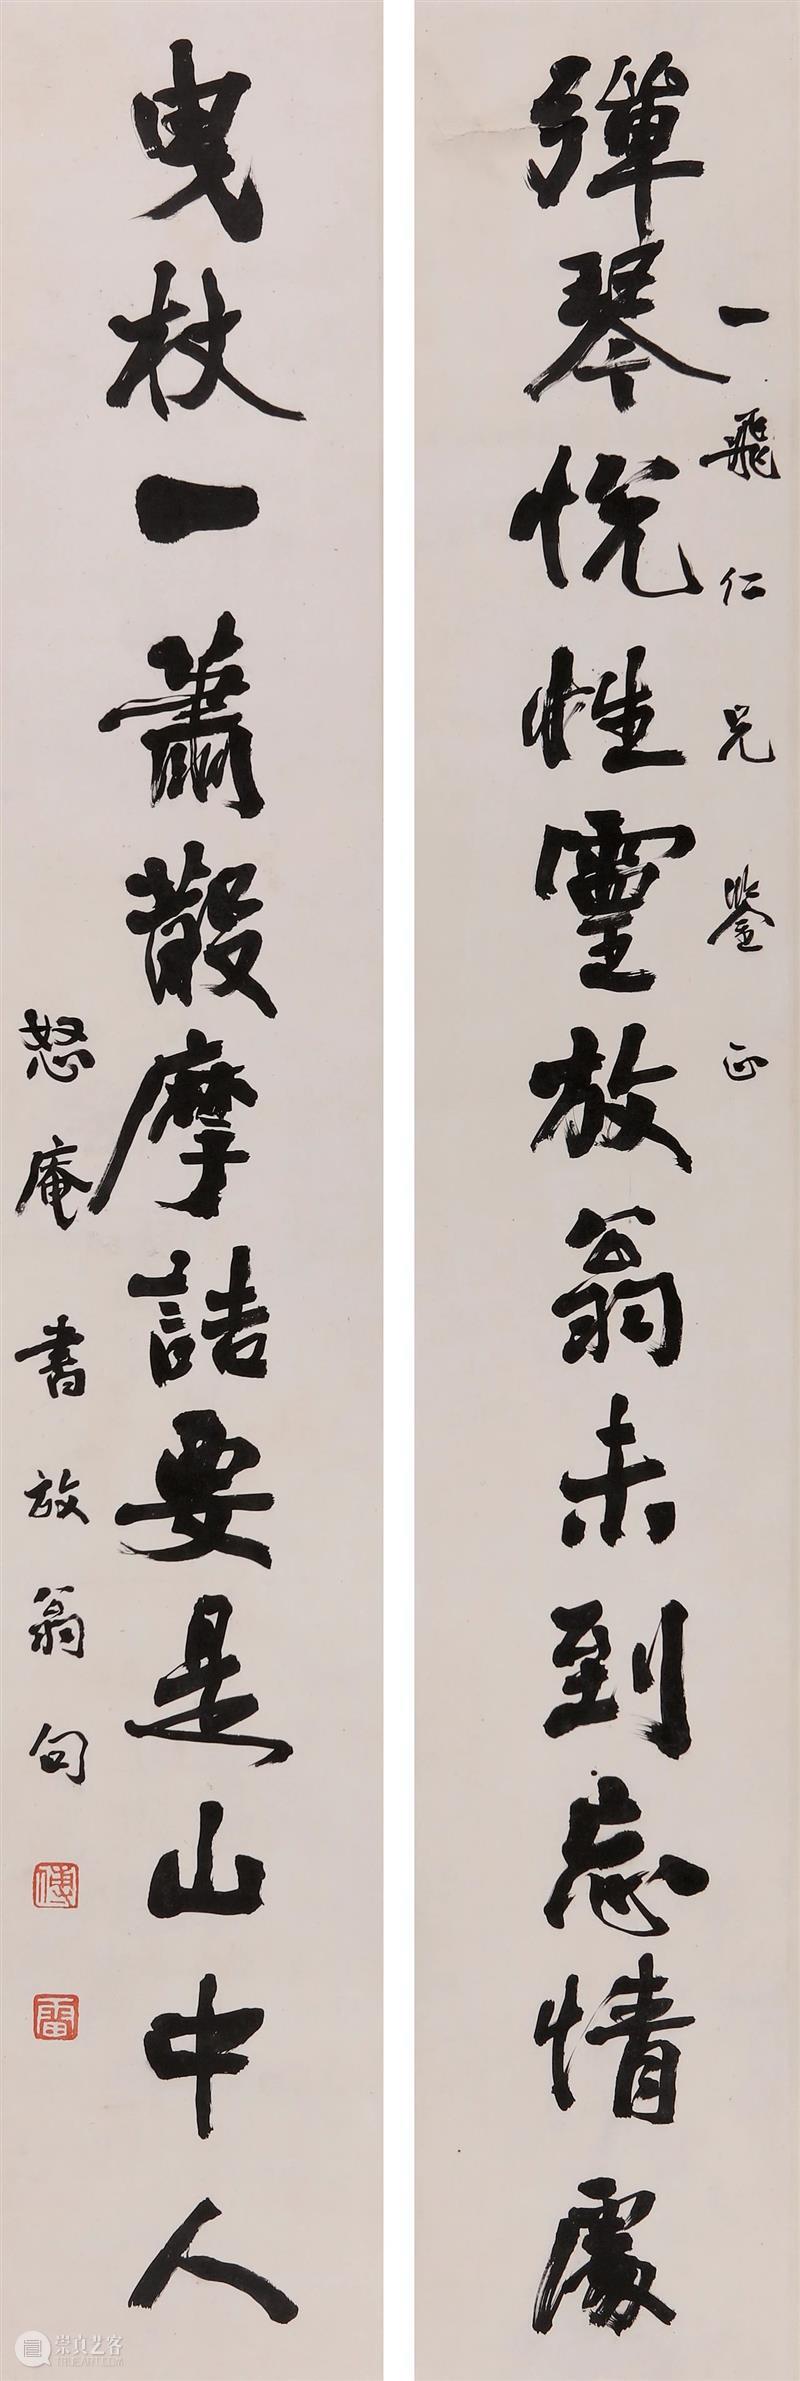 一飛仁兄鉴正
彈琴悅性靈放翁未到忘情處
曳杖一蕭散摩詰要是山中人
怒庵書放翁句
傅
雷
崇真艺客
www.TRUEART.COM